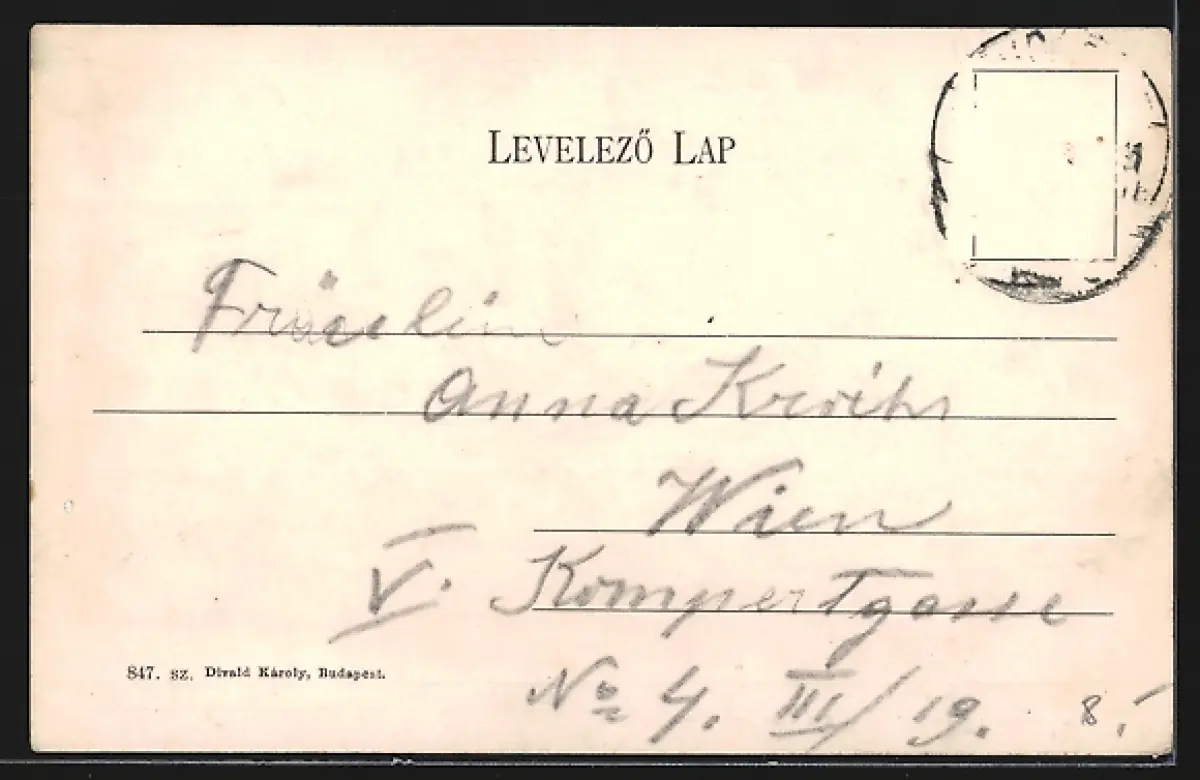 LEVELEZŐ LAP
Fräulein
Anna
Wien
V. Kompertgasse
847. sz. Divald Károly, Budapest.
No 4. III/19.
8.